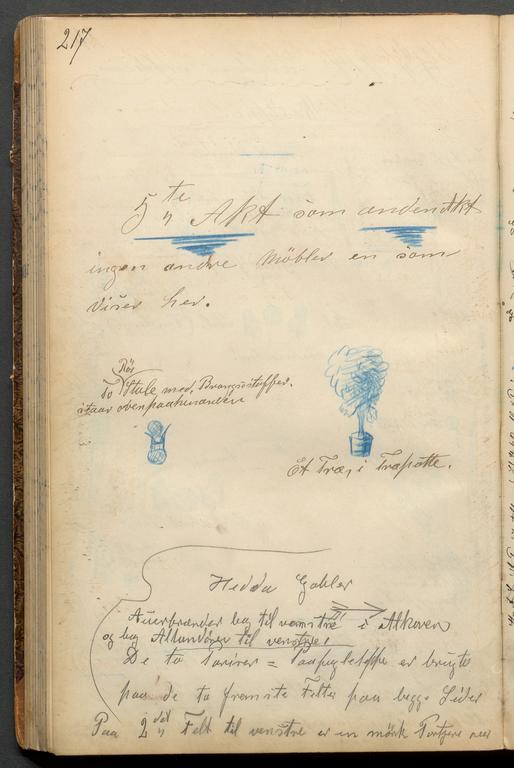 217
5te Akt som anden Akt
ingen andre Möbler en som
viser her.
Rör
To Stole med
staar ovenpaahinanden
Et Træ, i Træpotte.
Hedda Gabler
Auerbrander bag til venstre i Alkoven
og bag til venstre!
De to = er brugte
paa de to fremste Felter paa begge Sider
Paa 2det Felt til venstre er en mörk Portjere